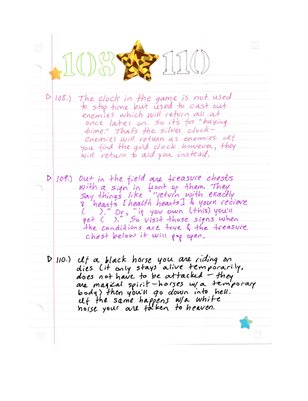 108 110
108.) The clock in the game is not used
to stop time but used to cast out
enemies which will return all at
once later on. So its for "buying
time." Thats the silver clock-
enemies will return as enemies. If
you find the gold clock however, they
will return to aid you instead.
109.) Out in the field are treasure chests
with a sign in front of them. They
say things like "return with exactly
8 hearts [health hearts] & you'll recieve
( )." Or, "if you own (this) you'll
get ( )." So visit those signs when
the conditions are true & the treasure
chest below it will pop open.
110.) If a black horse you are riding on
dies (it only stays alive temporarily,
does not have to be attacked - they
are magical spirit-horses w/ a temporary
body) then you'll go down into hell.
If the same happens w/ a white
horse you are taken to heaven.